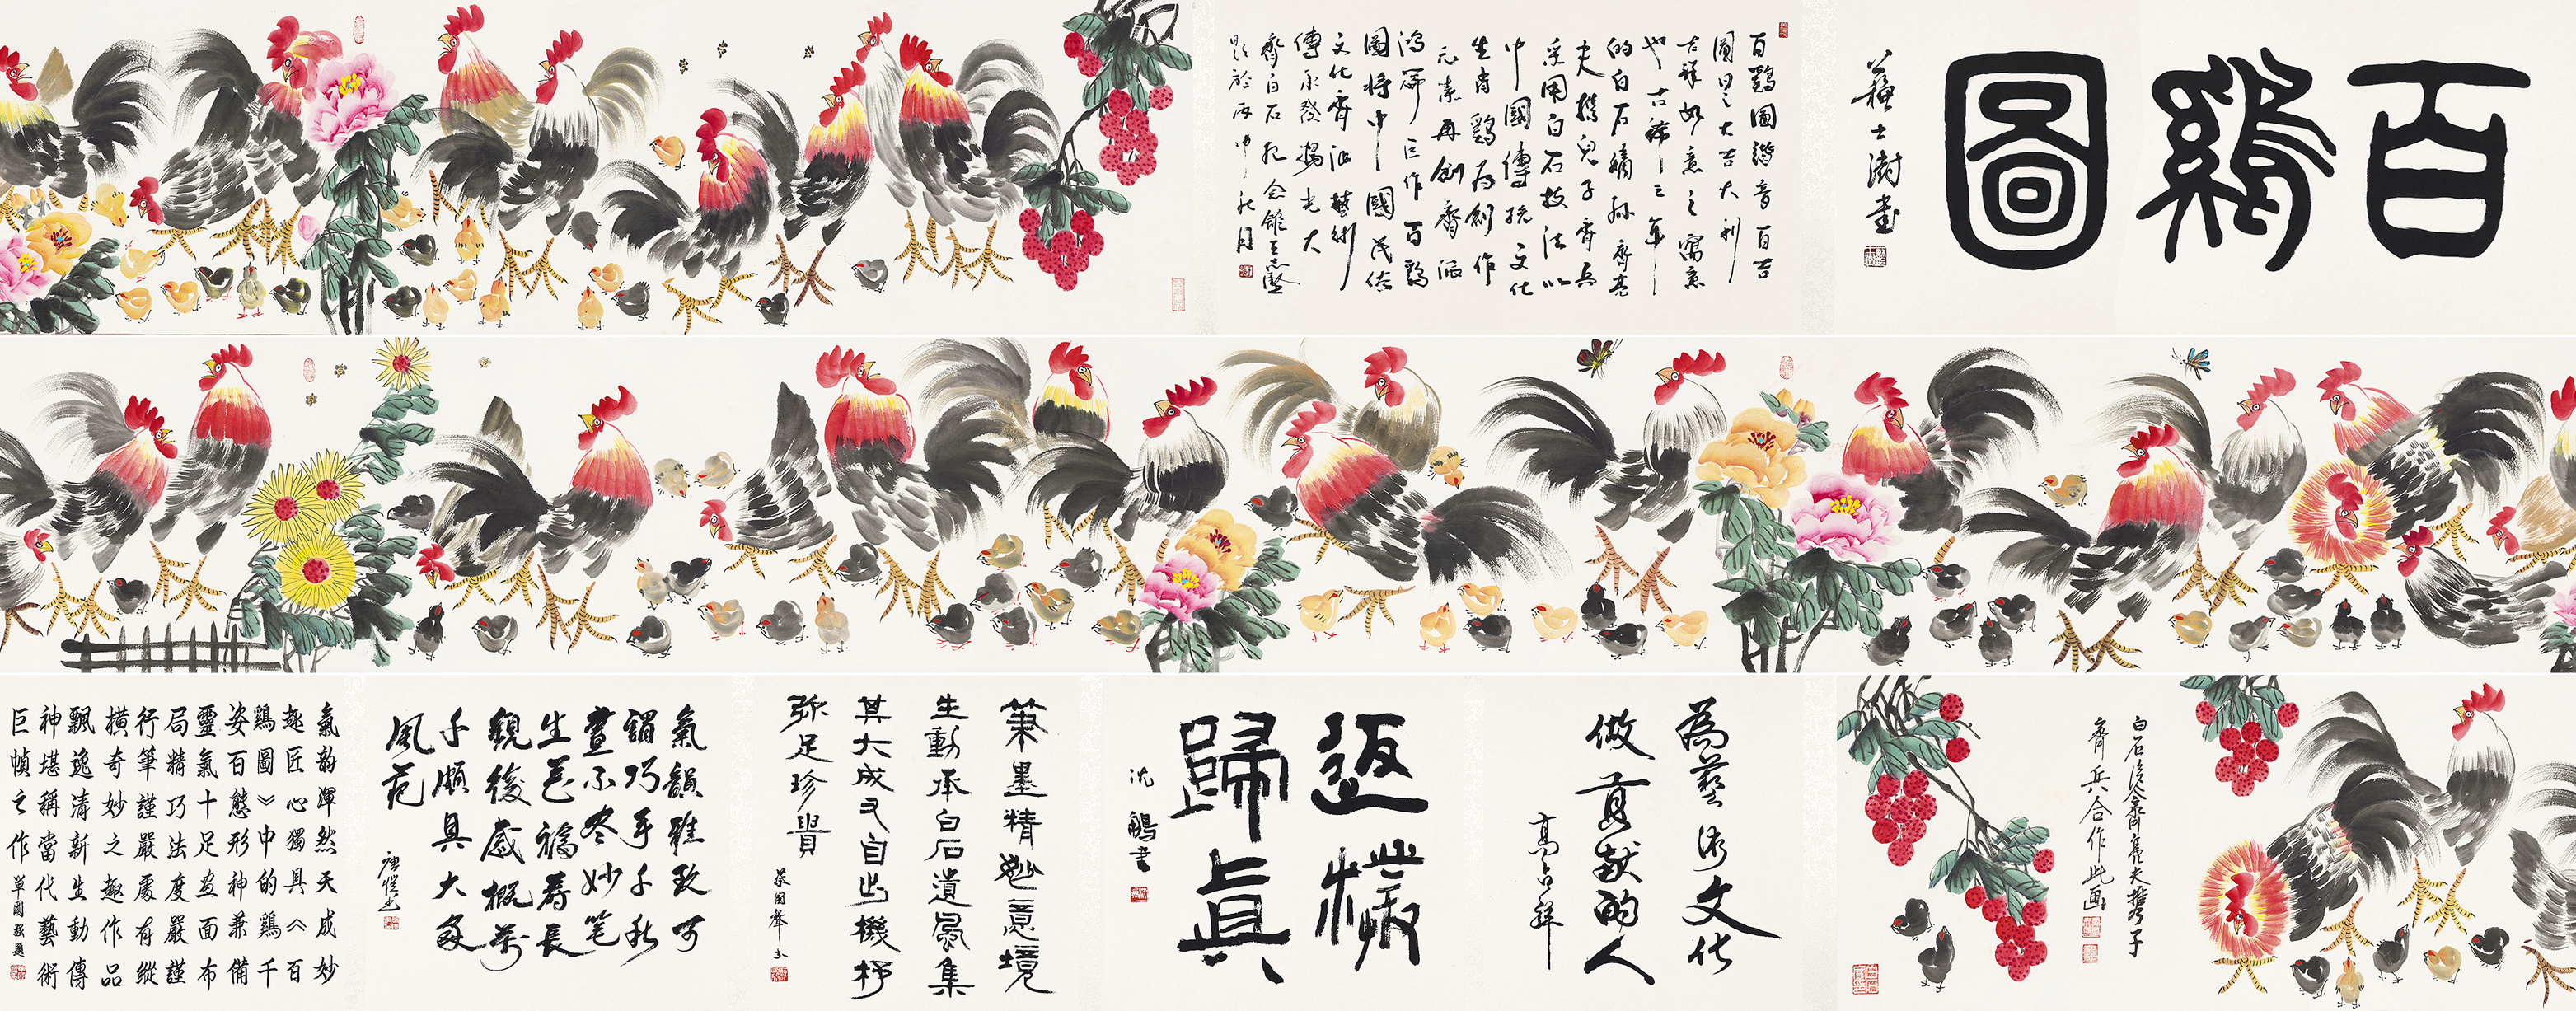 百鷄圖
蘇士澍書
百鷄圖諧音百吉
圖呈大吉大利
吉祥如意之寓意
也古稀之年
的白石嫡孫齊亮
夫携兒子齊兵
采用白石技法以
中國傳統文化
生肖鷄爲創作
元素再創齊派
鴻篇巨作百鷄
圖將中國民俗
文化齊派藝術
傳承發揚光大
齊白石紀念館
題於丙申秋月
白石後人齊亮夫携子
齊兵合作此畫
為藝術文化
做貢獻的人
高占祥
返樸
歸真
沈鵬書
筆墨精妙意境
生動承白石遺風集
其大成又自出機杼
彌足珍貴
氣韻雅致可
謂巧手千秋
畫不盡妙笔
生花福壽長
觀後感概萬
千頗具大家
風范
氣韵渾然天成妙
趣匠心獨具《百
鷄圖》中的鷄千
姿百態形神兼備
靈氣十足畫面布
局精巧法度嚴謹
行筆謹嚴處有縱
横奇妙之趣作品
飄逸清新生動傳
神堪稱當代藝術
巨幀之作 單國强題